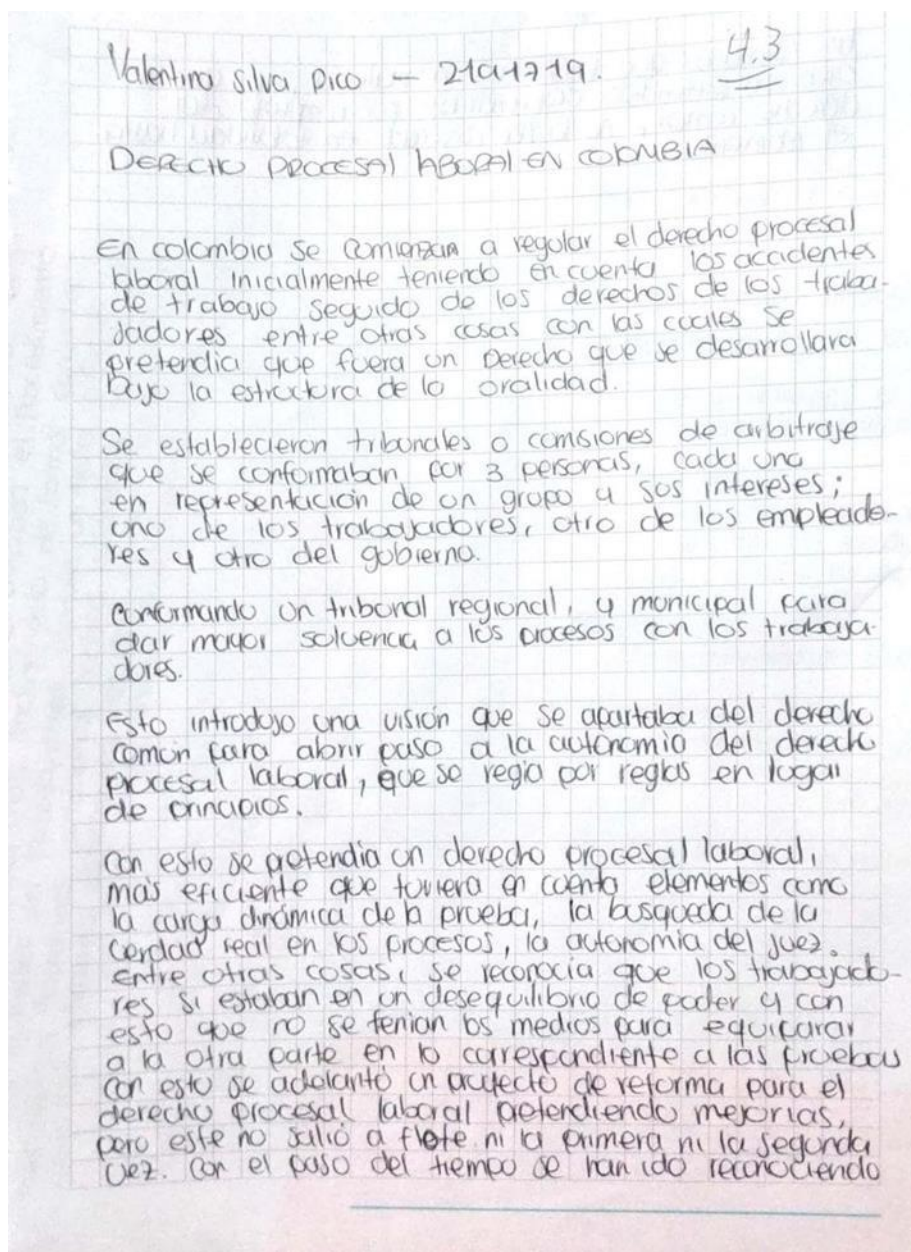 Valentina Silva Pico - 2191719.
4.3
DERECHO PROCESAL LABORAL EN COLOMBIA
En colombia se comienzan a regular el derecho procesal
laboral inicialmente teniendo en cuenta los accidentes
de trabajo seguido de los derechos de los traba-
jadores entre otras cosas con las cuales se
pretendia que fuera un Derecho que se desarrollara
bajo la estructura de la oralidad.
Se establecieron tribunales o comisiones de arbitraje
que se conformaban por 3 personas, cada una
en representación de un grupo y sus intereses;
uno de los trabajadores, otro de los empleado-
res y otro del gobierno.
Conformando un tribunal regional, y municipal para
dar mayor solvencia a los procesos con los trabaja-
dores.
Esto introdujo una visión que se apartaba del derecho
común para abrir paso a la autonomia del derecho
procesal laboral, que se regia por reglas en lugar
de principios.
Con esto se pretendia un derecho procesal laboral,
más eficiente que tuviera en cuenta elementos como
la carga dinámica de la prueba, la busqueda de la
verdad real en los procesos, la autonomia del juez.
Entre otras cosas, se reconocia que los trabajado-
res si estaban en un desequilibrio de poder y con
esto que no se tenian los medios para equiparar
a la otra parte en lo correspondiente a las pruebas
con esto se adelantó un proyecto de reforma para el
derecho procesal laboral pretendiendo mejorias,
pero este no salió a flote ni la primera ni la segunda
vez. Con el paso del tiempo se han ido reconociendo